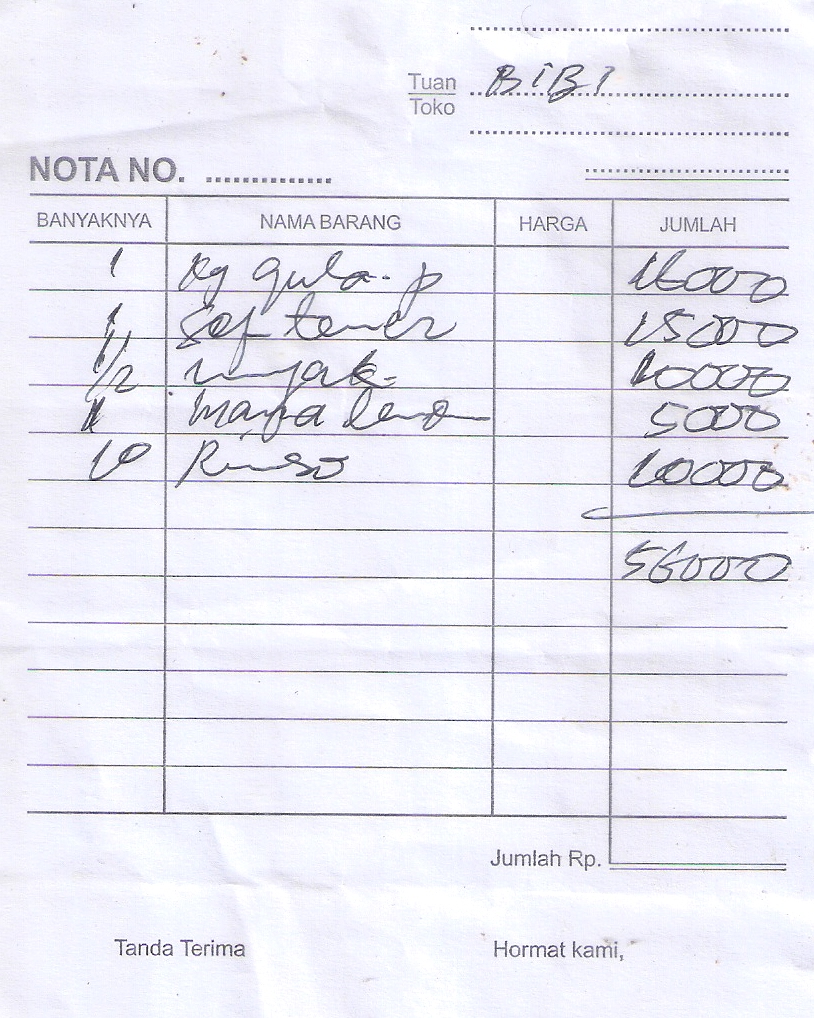 Tuan BiBi
Toko
NOTA NO. ..............
BANYAKNYA NAMA BARANG HARGA JUMLAH
1 kg gula - p 16000
1 15000
1/2 minyak 10000
1 5000
10 Rinso 10000
56000
Jumlah Rp.
Tanda Terima Hormat kami,